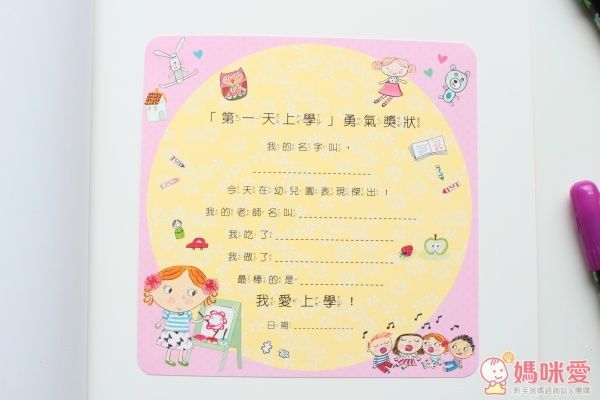 「第一天上學」勇氣獎狀
我的名字叫，
今天在幼兒園表現傑出！
我的老師名叫
我吃了
我做了
最棒的是
我愛上學！
日期
媽咪愛
新手爸媽諮詢站&團購